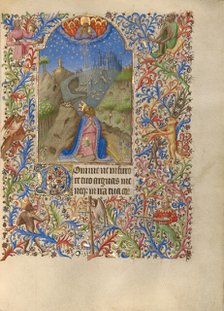 Domine ne in furo
re tuo arguas me
neqz in ira tua